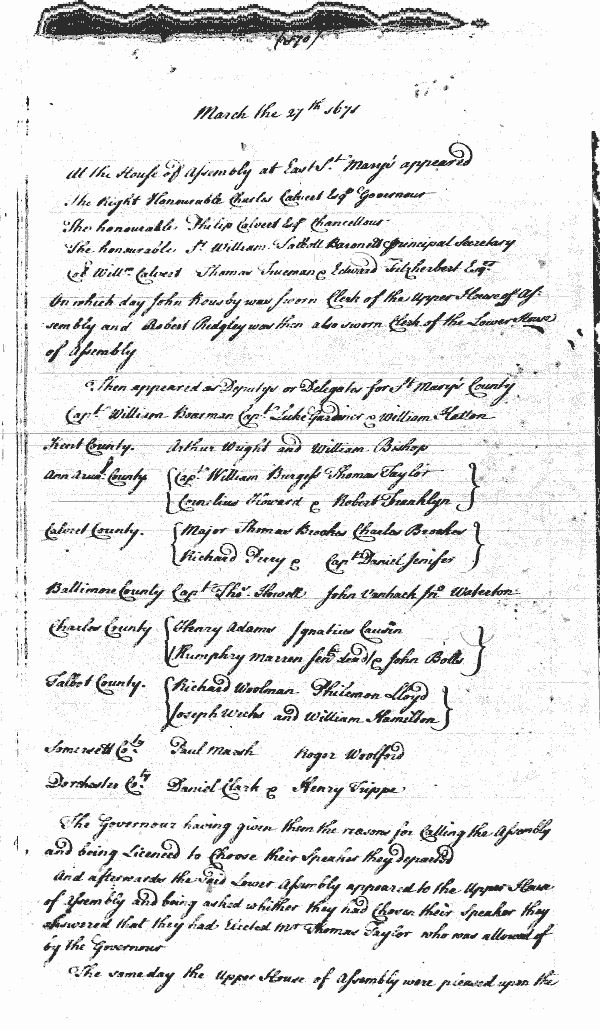 March the 27th 1671
At the House of Assembly at East St Marys appeared
The Right Honourable Charles Calvert Esqr Governour
The honourable Philip Calvert Esqr Chancellour
The honourable Sr William Talbott Baronett Principal Secretary
Col Willm Calvert Thomas Trueman & Edward Fitzherbert Esqr
On which day John Rousby was sworn Clerk of the Upper House of As-
sembly and Robert Ridgley was then also sworn Clerk of the Lower House
of Assembly
Then appeared as Deputys or Delegates for St Marys County
Capt William Boarman Capt Luke Gardiner & William Hatton
Kent County. Arthur Wright and William Bishop
Ann Arun: County Capt William Burgess Thomas Taylor
Cornelius Howard & Robert Franklyn
Calvert County. Major Thomas Brookes Charles Brookes
Richard Perry & Capt Daniel Jenifer
Baltimore County Capt Thos Howell John Vanhack Jno Waterton
Charles County Henry Adams Ignatius Causin
Humphry Warren Senr dead & John Bolls
Talbot County. Richard Woolman Philemon Lloyd
Joseph Weeks and William Hamilton
Somersett Coty Paul Marsh Roger Woolford
Dorchester Coty Daniel Clark & Henry Trippe
The Governour having given them the reasons for Calling the Assembly
and being Licenced to Choose their Speaker they departed
And afterwards the said Lower Assembly appeared to the Upper House
of Assembly and being asked whether they had Chosen their Speaker they
answered that they had Elected Mr Thomas Taylor who was allowed of
by the Governour
The same day the Upper House of Assembly were pleased upon the